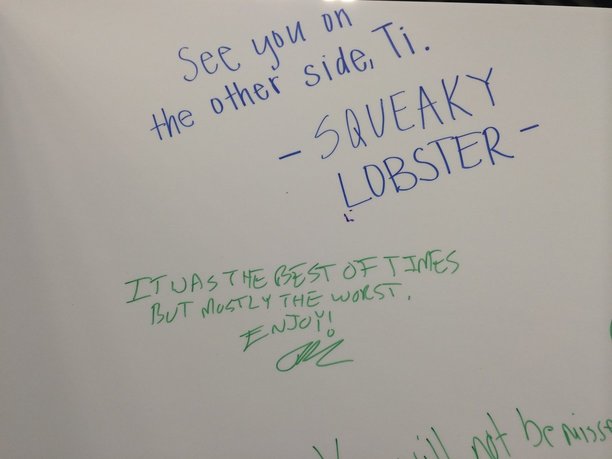 See you on
the other side, Ti.
- SQUEAKY
LOBSTER -
IT WAS THE BEST OF TIMES
BUT MOSTLY THE WORST.
ENJOY!
will not be misse